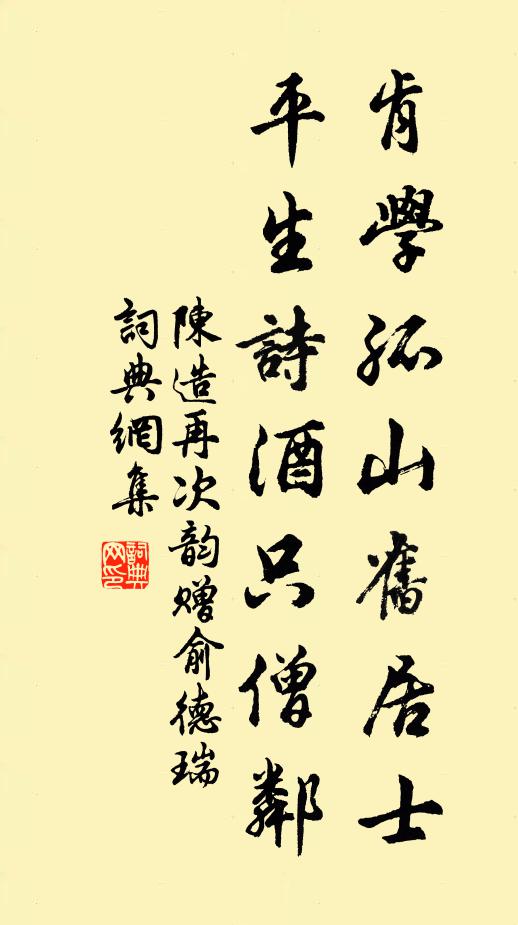 肯學孤山舊居士
平生詩酒只僧鄰
陳造再次韵贈俞德瑞
詞典網集
詞典
网印